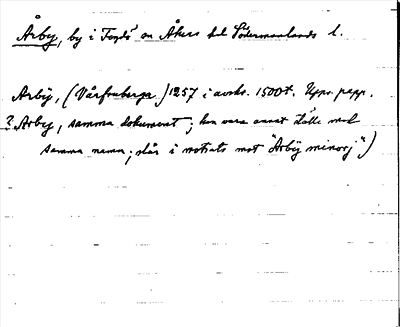 Årby, by i Fogdö sn Åkers hd Södermanlands l.
Arby, (Vårfruberga) 1257 i avskr. 1500t. Upps. papp.
? Arby, samma dokument; kan vara annat ställe med
samma namn; står i motsats mot "Arby minorj")